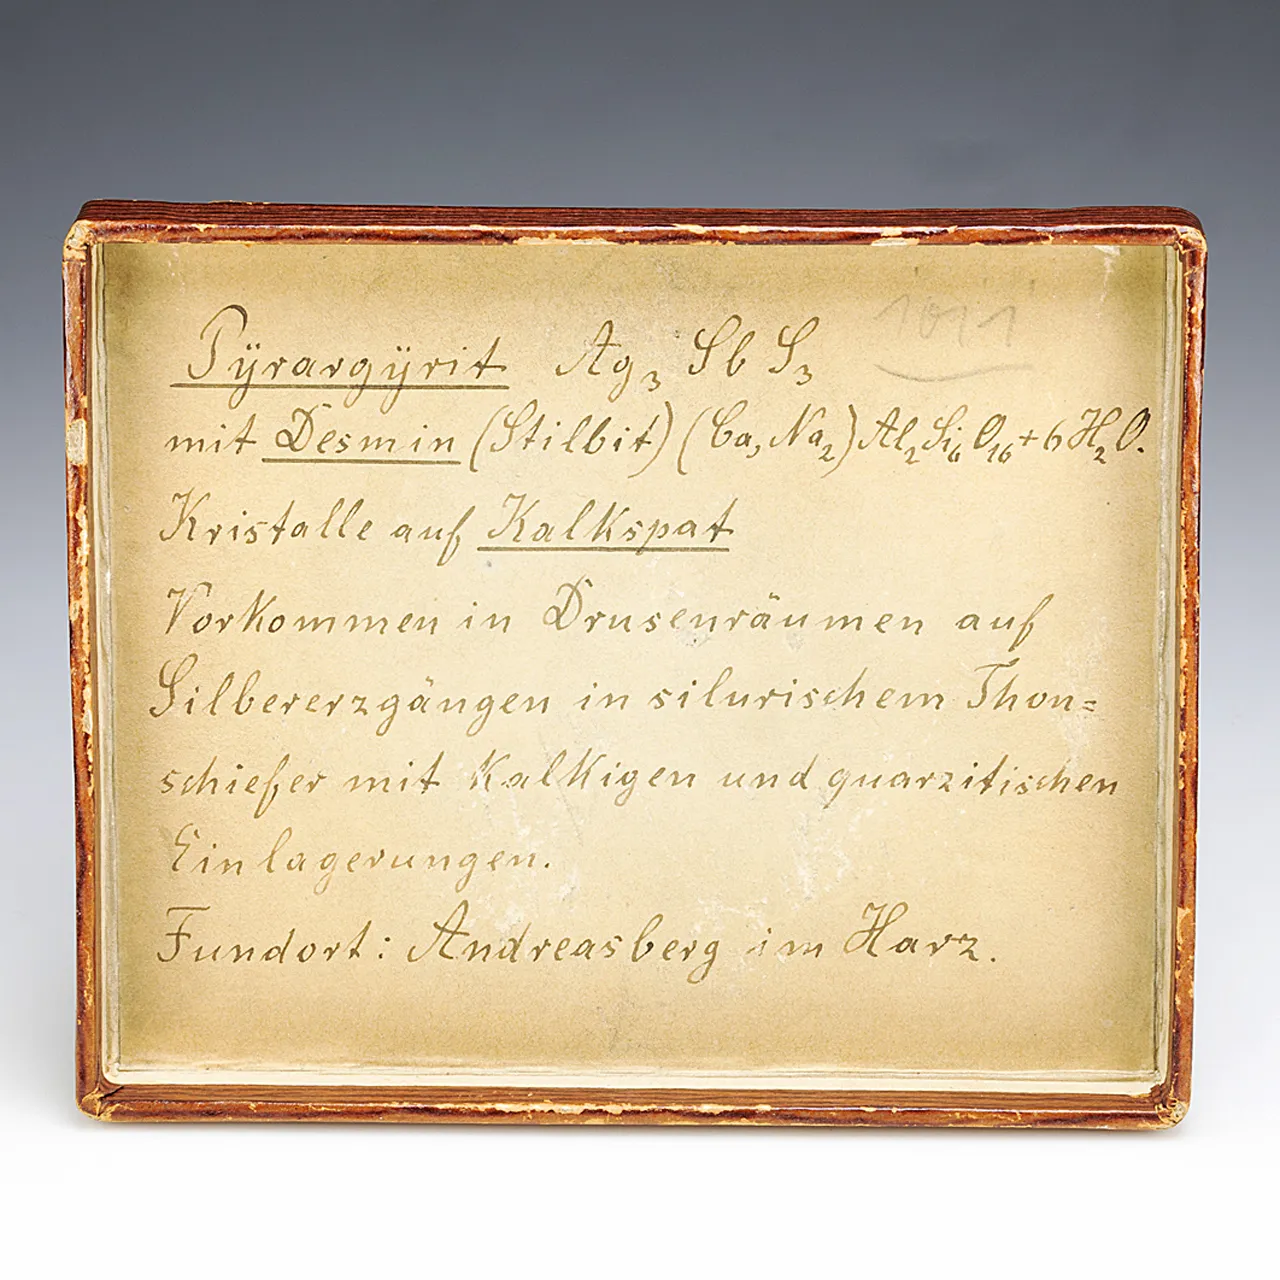 Pÿrargÿrit Ag₃ Sb S₃
1011
mit Desmin (Stilbit) (Ca, Na₂) Al₂ Si₆ O₁₆ + 6 H₂O.
Kristalle auf Kalkspat
Vorkommen in Drusenräumen auf
Silbererzgängen in silurischem Thon=
schiefer mit kalkigen und quarzitischen
Einlagerungen.
Fundort: Andreasberg im Harz.